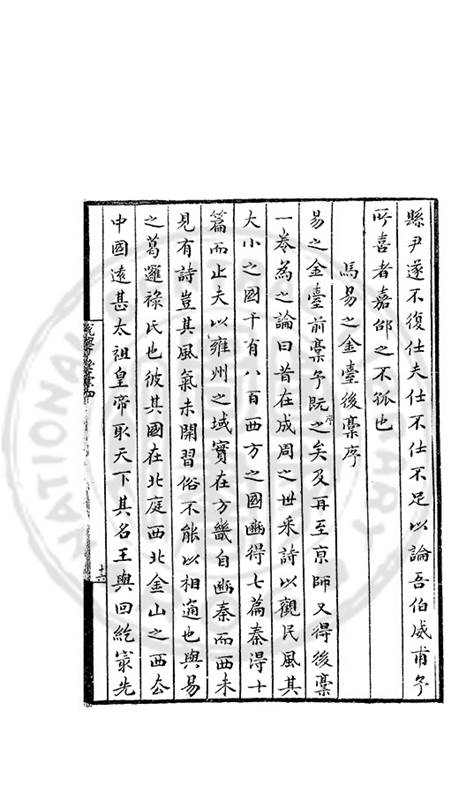 縣尹遂不復仕夫仕不仕不足以論吾伯威甫予
所喜者嘉邰之不孤也
馬易之金臺後稾序
易之金臺前稾予既序之矣及再至京師又得後稾
一卷為之論曰昔在成周之世采詩以觀民風其
大小之國千有八百西方之國豳得七篇秦得十
篇而止夫以雍州之域實在方畿自豳秦而西未
見有詩豈其風氣未開習俗不能以相通也與易
之葛邏祿氏也彼其國在北庭西北金山之西去
中國遠甚太祖皇帝取天下其名王與回紇㝡先
十六